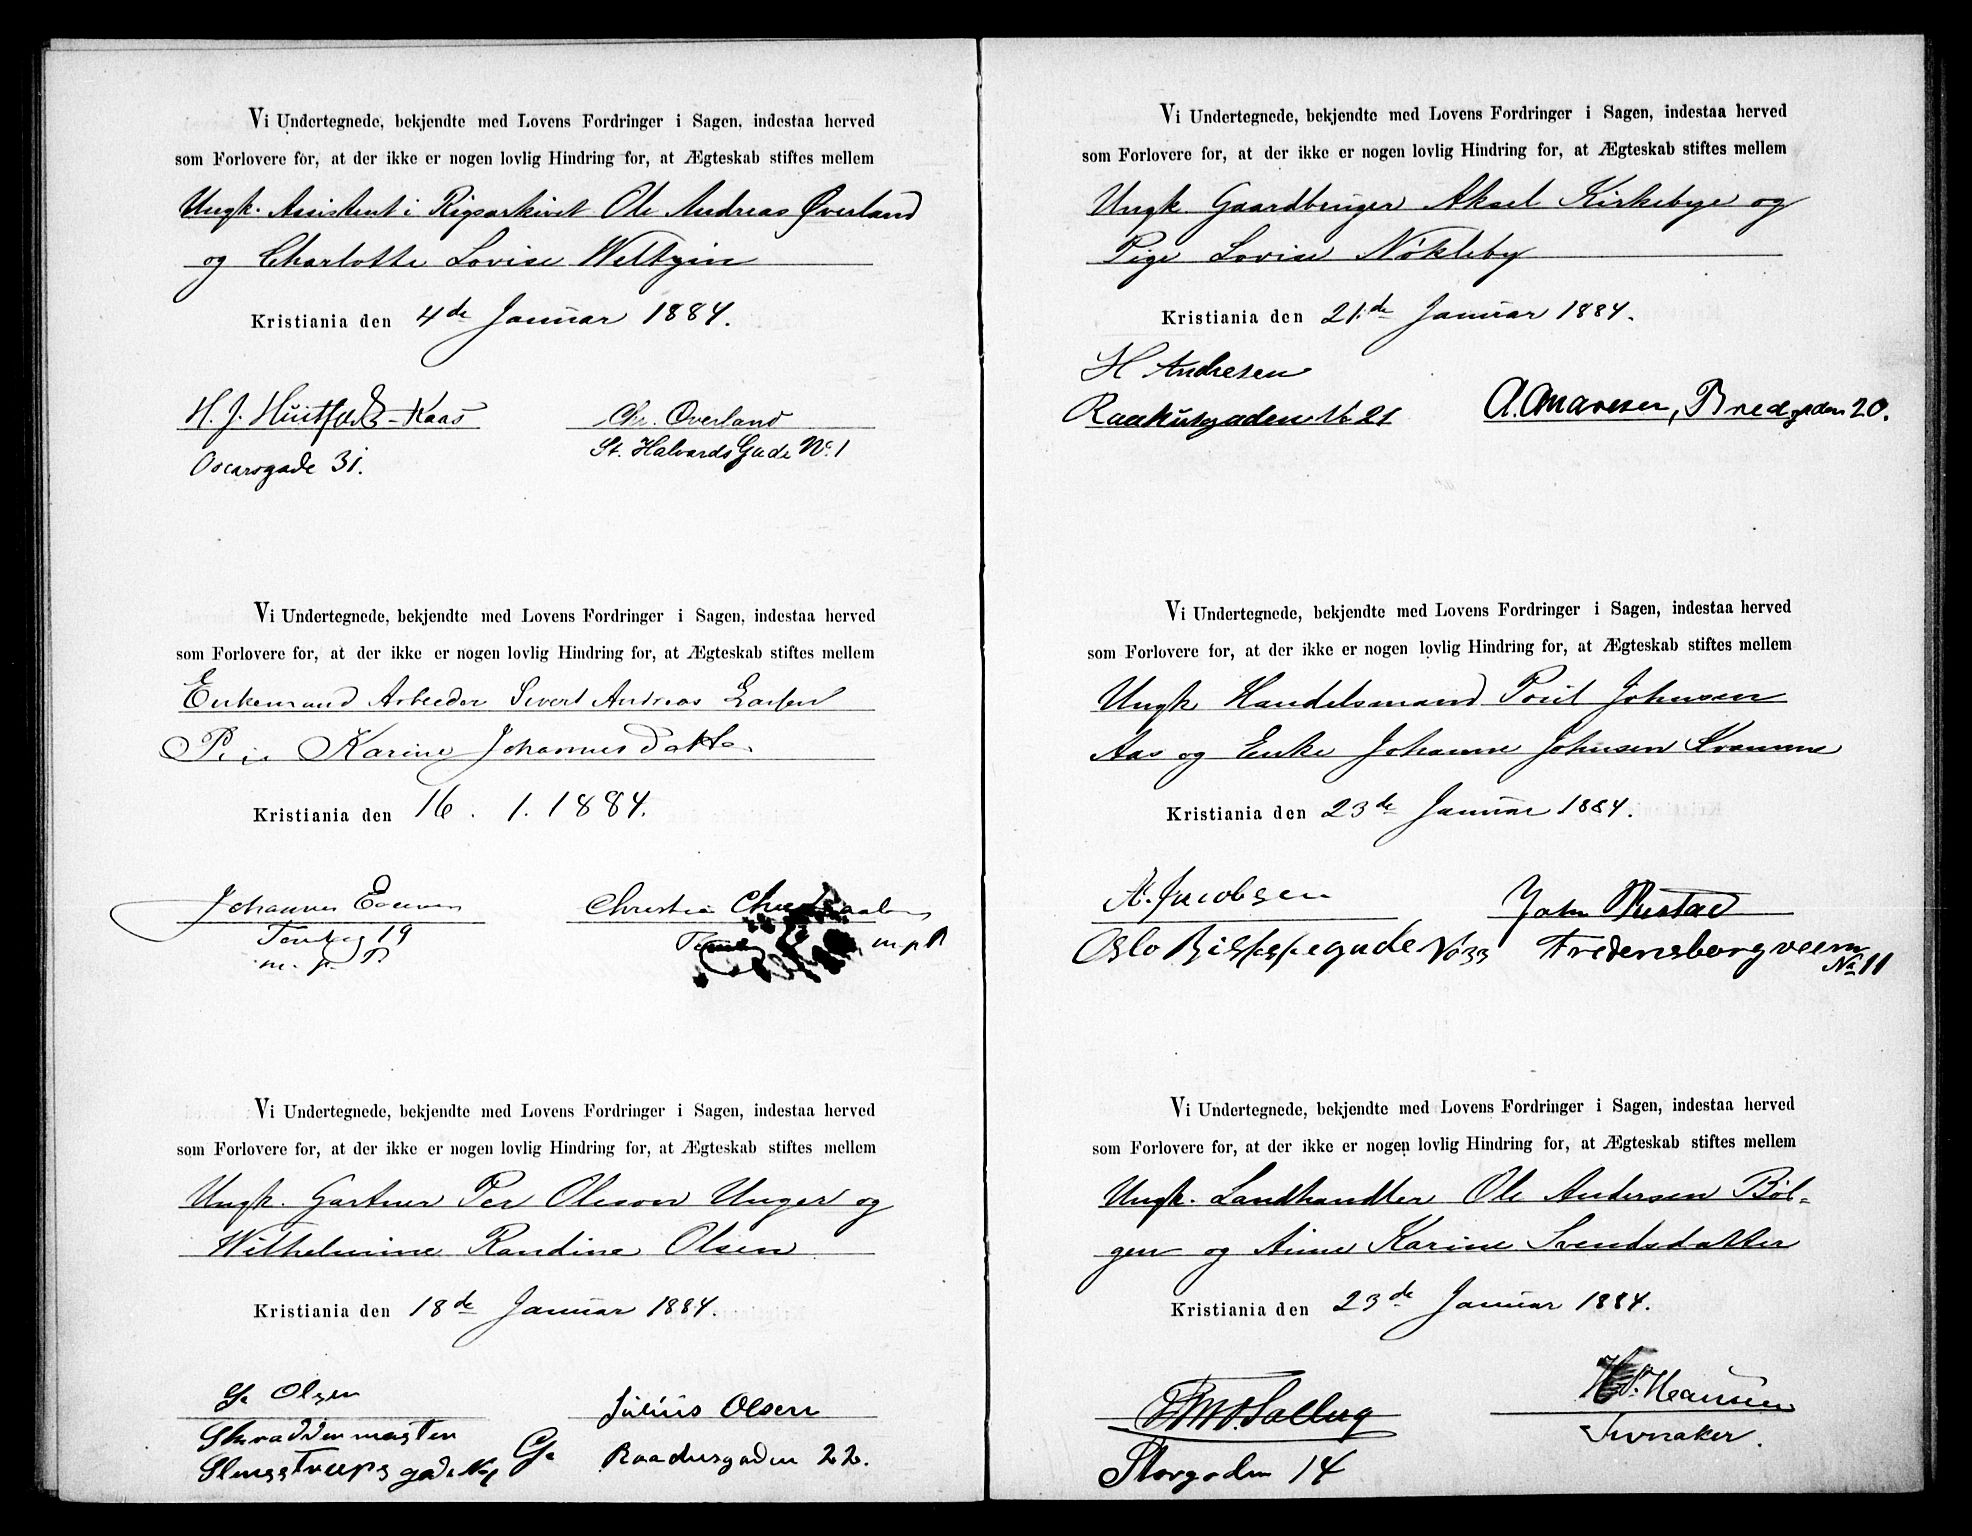 Vi Undertegnede, bekjendte med Lovens Fordringer i Sagen, indestaa herved
som Forlovere for, at der ikke er nogen lovlig Hindring for, at Ægteskab stiftes mellem
Ungk. Assistent i Rigsarkivet Ole Andreas Øverland
og Charlotte Lovise Welhgin
Kristiania den 4de Januar 1884.
H. J. Huitfeldt-Kaas
Chr. Överland
Oscarsgade 31.
St. Halvards Gade No. 1
Vi Undertegnede, bekjendte med Lovens Fordringer i Sagen, indestaa herved
som Forlovere for, at der ikke er nogen lovlig Hindring for, at Ægteskab stiftes mellem
Enkemand Arbeider Sivert Andreas Larsen
Pige Karine Johannesdatter
Kristiania den 16. 1. 1884.
Johannes
Christia
19
m. p. P.
m. p. P.
Vi Undertegnede, bekjendte med Lovens Fordringer i Sagen, indestaa herved
som Forlovere for, at der ikke er nogen lovlig Hindring for, at Ægteskab stiftes mellem
Ungk. Gartner Per Oleson Unger og
Wilhelmine Randine Olsen
Kristiania den 18de Januar 1884.
Olsen
Julius Olsen
Skræddermester
Slemgstrups gade No
Raadusgaden 22.
Vi Undertegnede, bekjendte med Lovens Fordringer i Sagen, indestaa herved
som Forlovere for, at der ikke er nogen lovlig Hindring for, at Ægteskab stiftes mellem
Ungk. Gaardbruger Aksel Kirkebye og
Pige Lovise Nökleby
Kristiania den 21.de Januar 1884.
H Andresen
Raahusgaden No 21
Bredgaden 20.
Vi Undertegnede, bekjendte med Lovens Fordringer i Sagen, indestaa herved
som Forlovere for, at der ikke er nogen lovlig Hindring for, at Ægteskab stiftes mellem
Ungk Handelsmand Poul Johnsen
Aas og Enke Johanne Johnsen Kvamme
Kristiania den 23de Januar 1884.
A. Jacobsen
John Rustad
Oslo Bispegade No 33
Fredensborgveien
No 11
Vi Undertegnede, bekjendte med Lovens Fordringer i Sagen, indestaa herved
som Forlovere for, at der ikke er nogen lovlig Hindring for, at Ægteskab stiftes mellem
Ungk. Landhandler Ole Andersen Böl-
gen og Anne Karine Svendsdatter
Kristiania den 23de Januar 1884.
Hansen
Storgaden 14
Jevnaker.